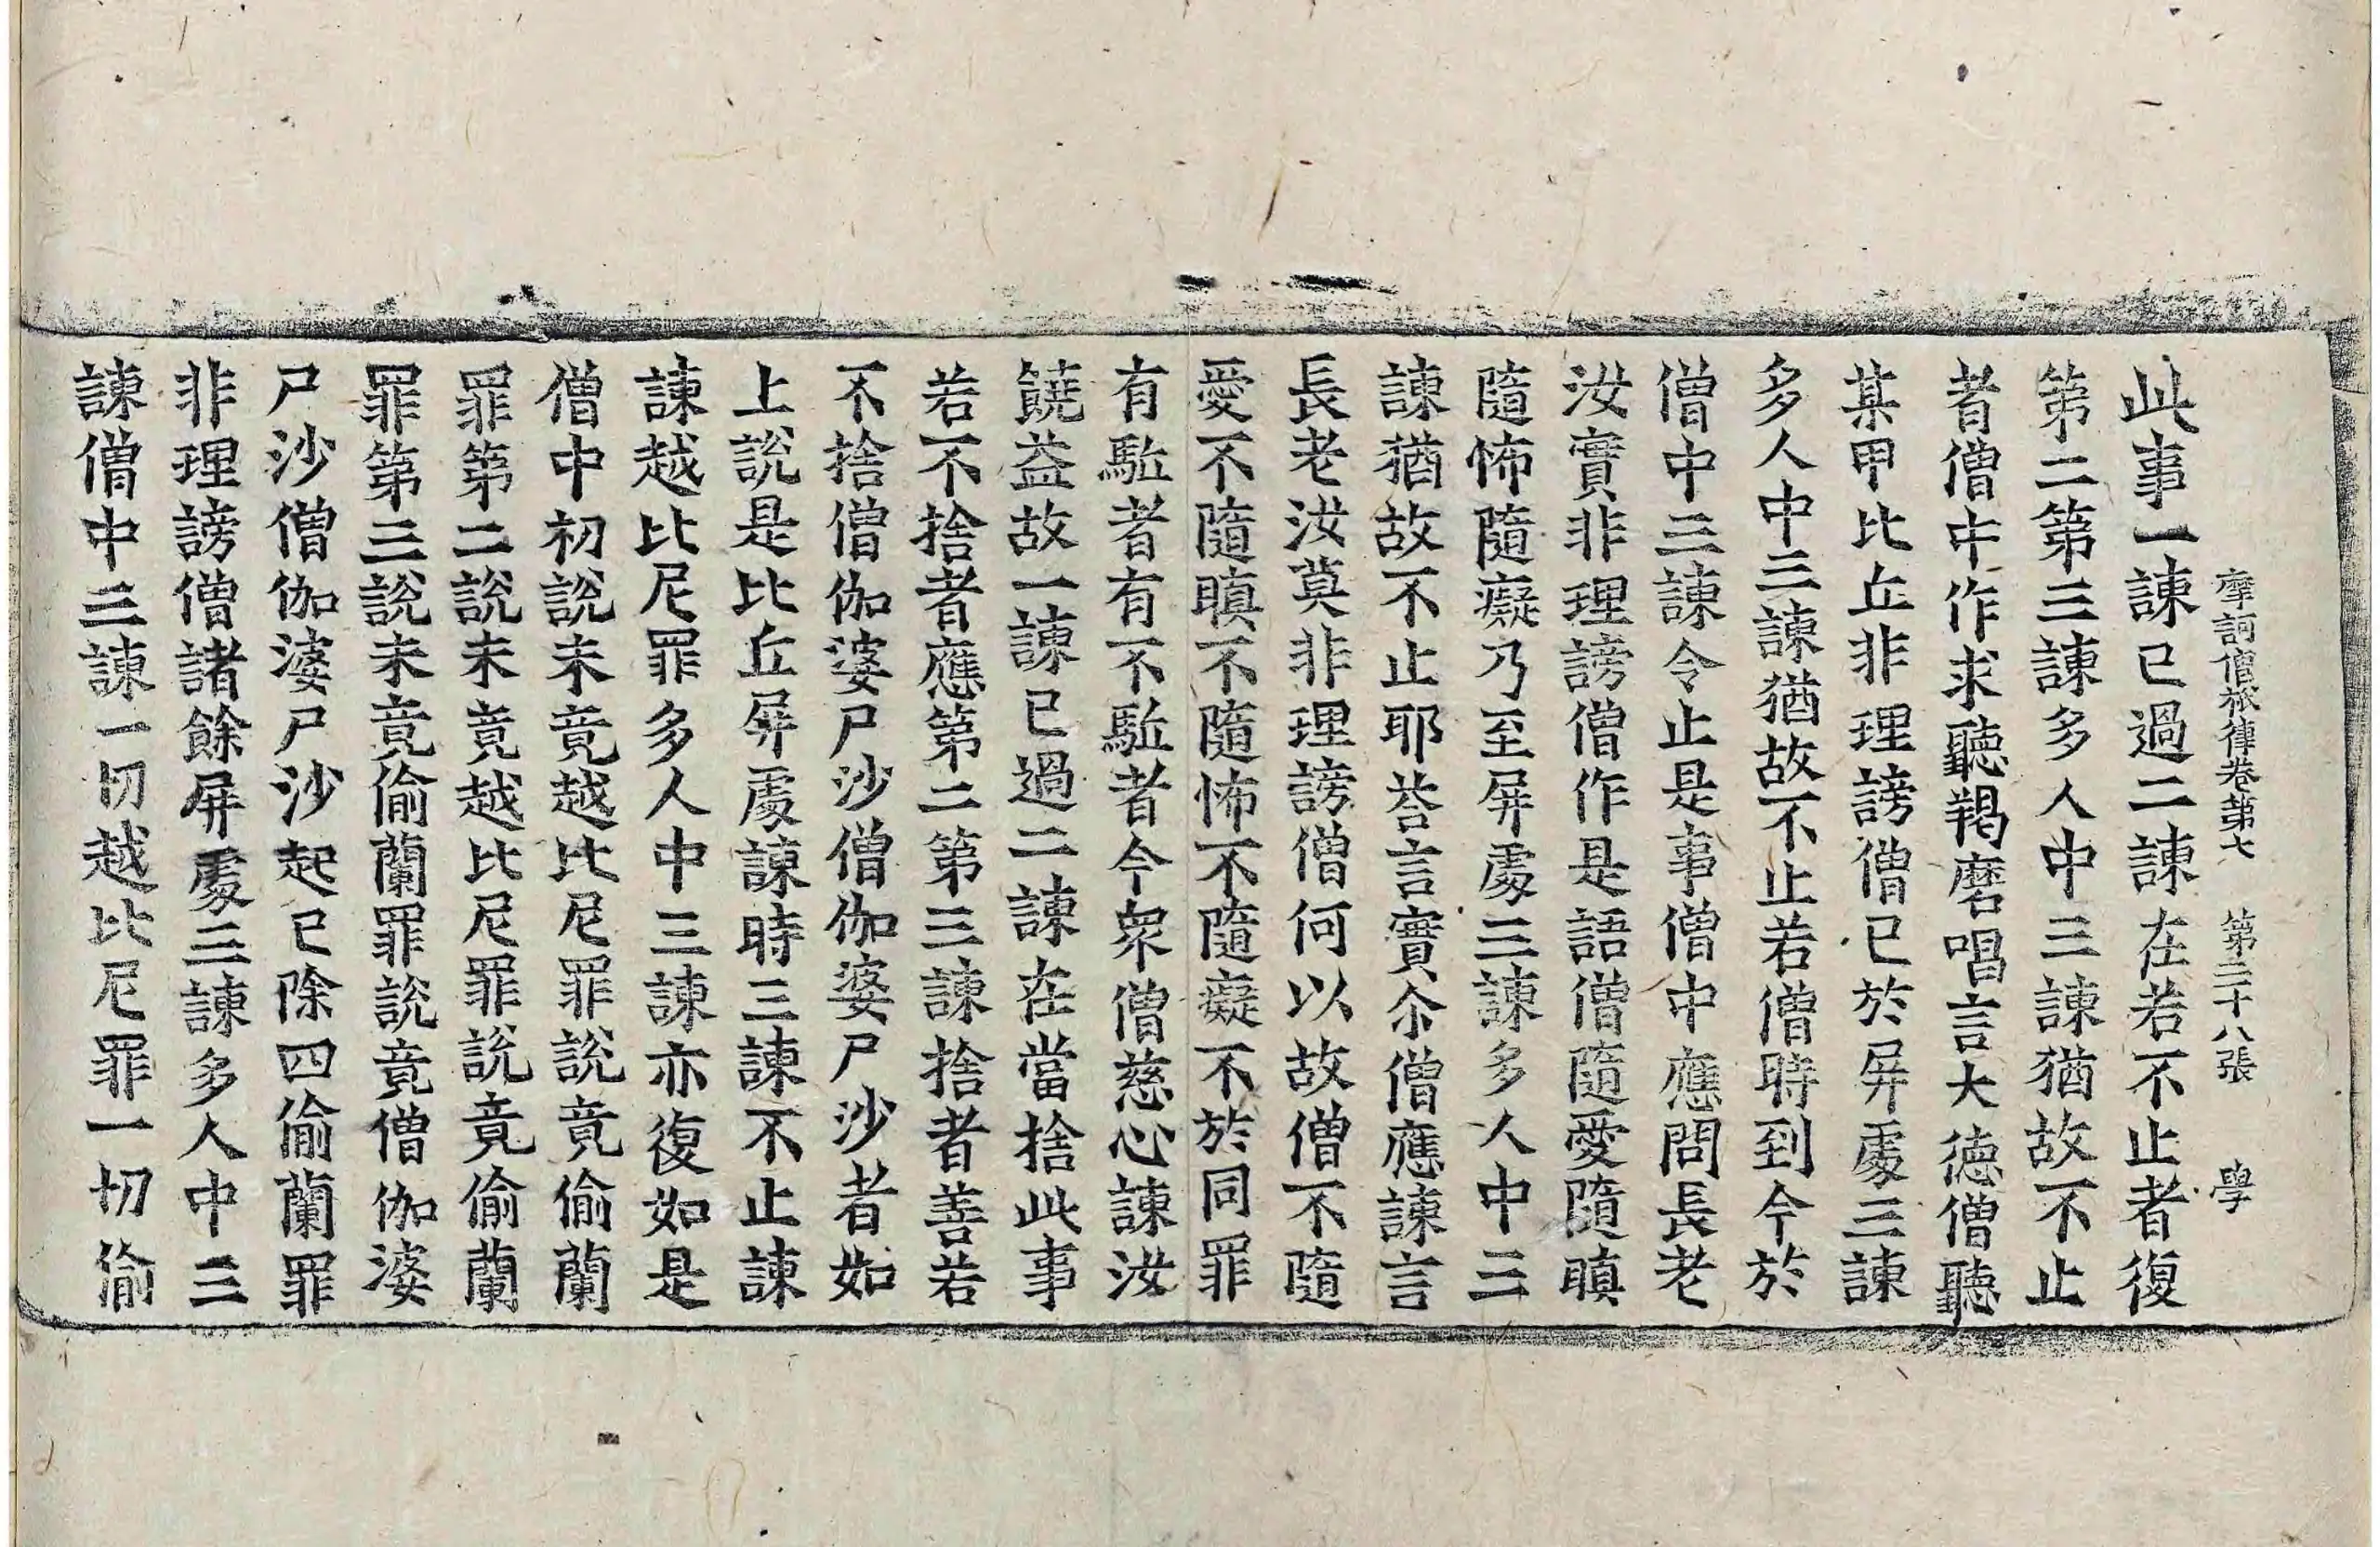 摩訶僧祇律卷第七　第三十八張　學
此事一諫已過二諫在若不止者復
第二第三諫多人中三諫猶故不止
者僧中作求聽羯磨唱言大德僧聽
某甲比丘非理謗僧已於屏處三諫
多人中三諫猶故不止若僧時到今於
僧中三諫令止是事僧中應問長老
汝實非理謗僧作是語僧隨愛隨瞋
隨怖隨癡乃至屏處三諫多人中三
諫猶故不止耶荅言實尒僧應諫言
長老汝莫非理謗僧何以故僧不隨
愛不隨瞋不隨怖不隨癡不於同罪
有駈者有不駈者今衆僧慈心諫汝
饒益故一諫已過二諫在當捨此事
若不捨者應第二第三諫捨者善若
不捨僧伽婆尸沙僧伽婆尸沙者如
上說是比丘屏處諫時三諫不止諫
諫越比尼罪多人中三諫亦復如是
僧中初說未竟越比尼罪說竟偷蘭
罪第二說未竟越比尼罪說竟偷蘭
罪第三說未竟偷蘭罪說竟僧伽婆
尸沙僧伽婆尸沙起已除四偷蘭罪
非理謗僧諸餘屏處三諫多人中三
諫僧中三諫一切越比尼罪一切偷